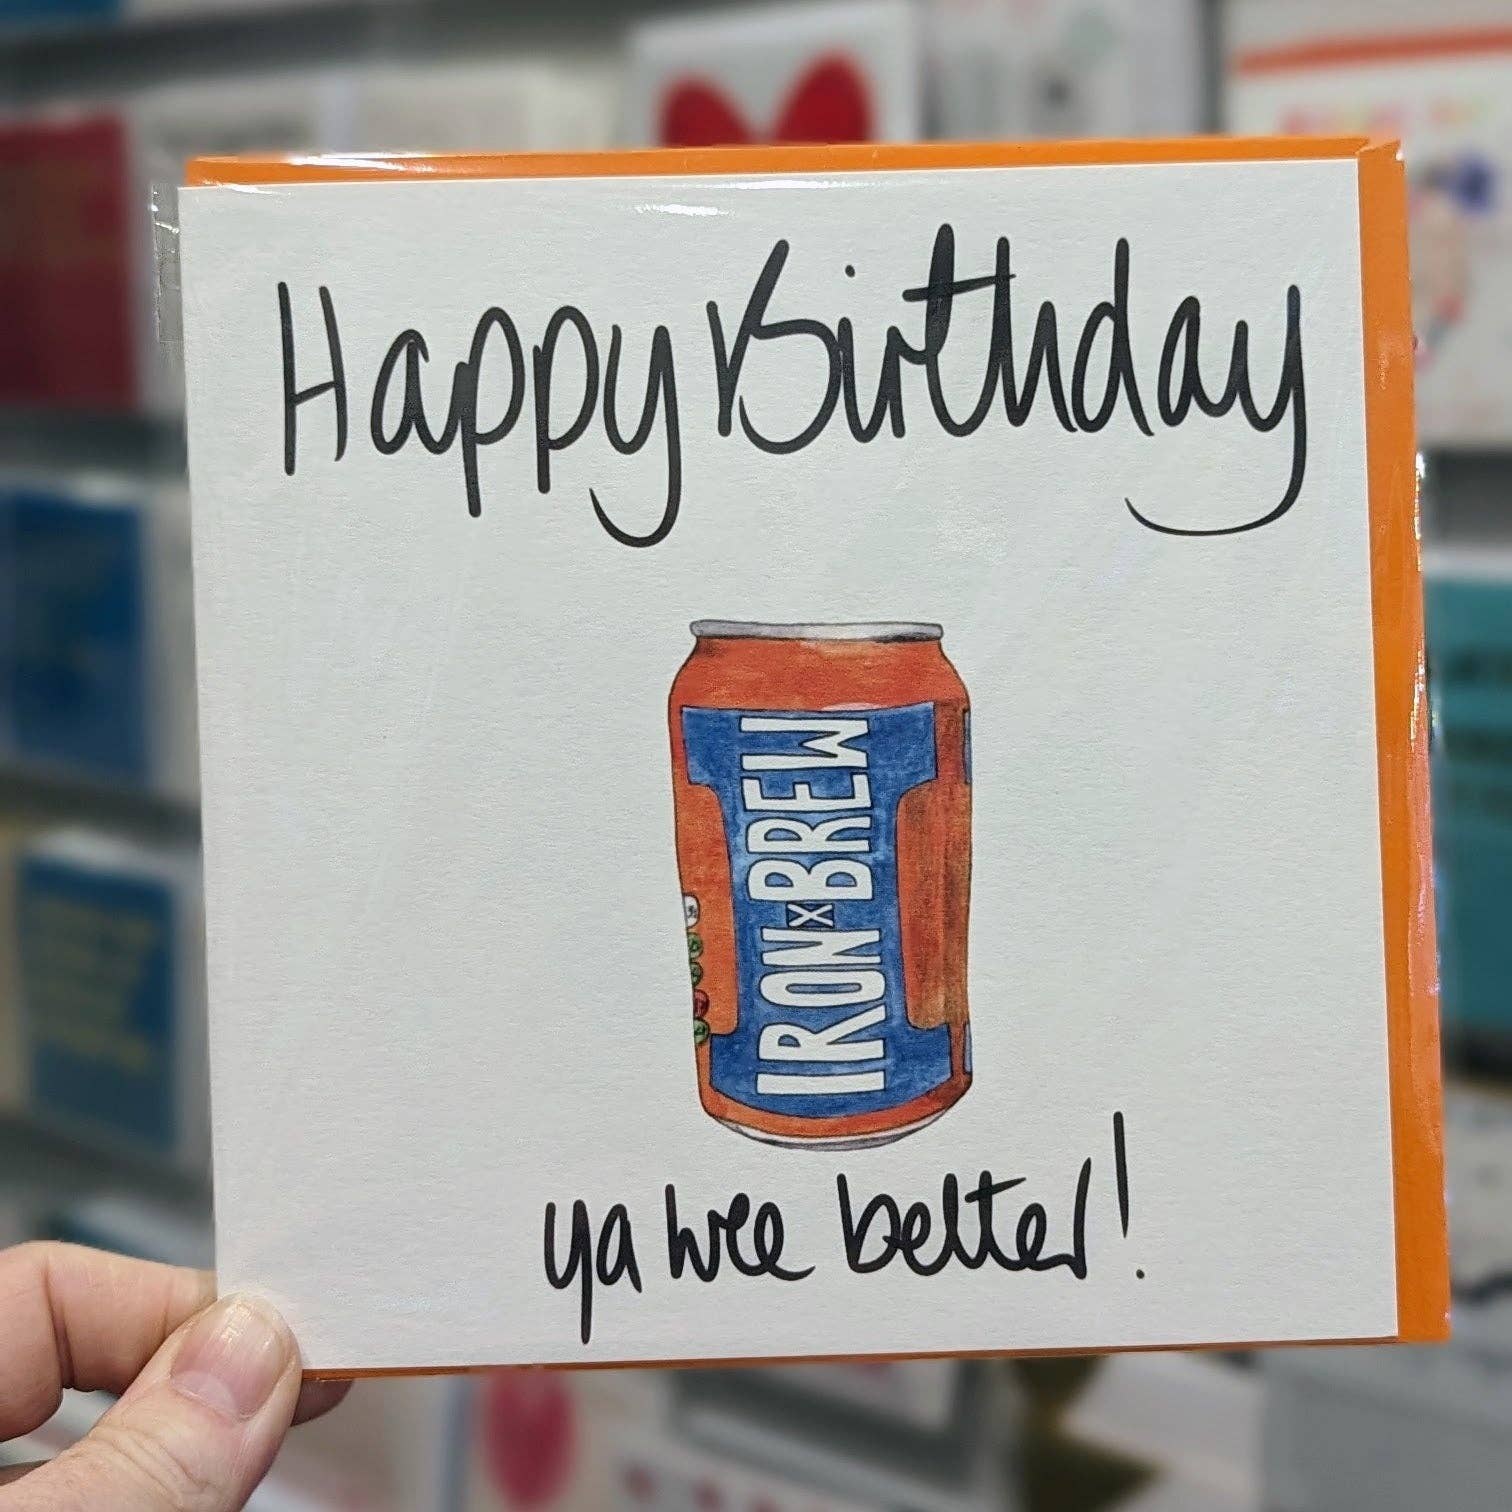 Happy Birthday
IRON X BREW
ya wee belter!